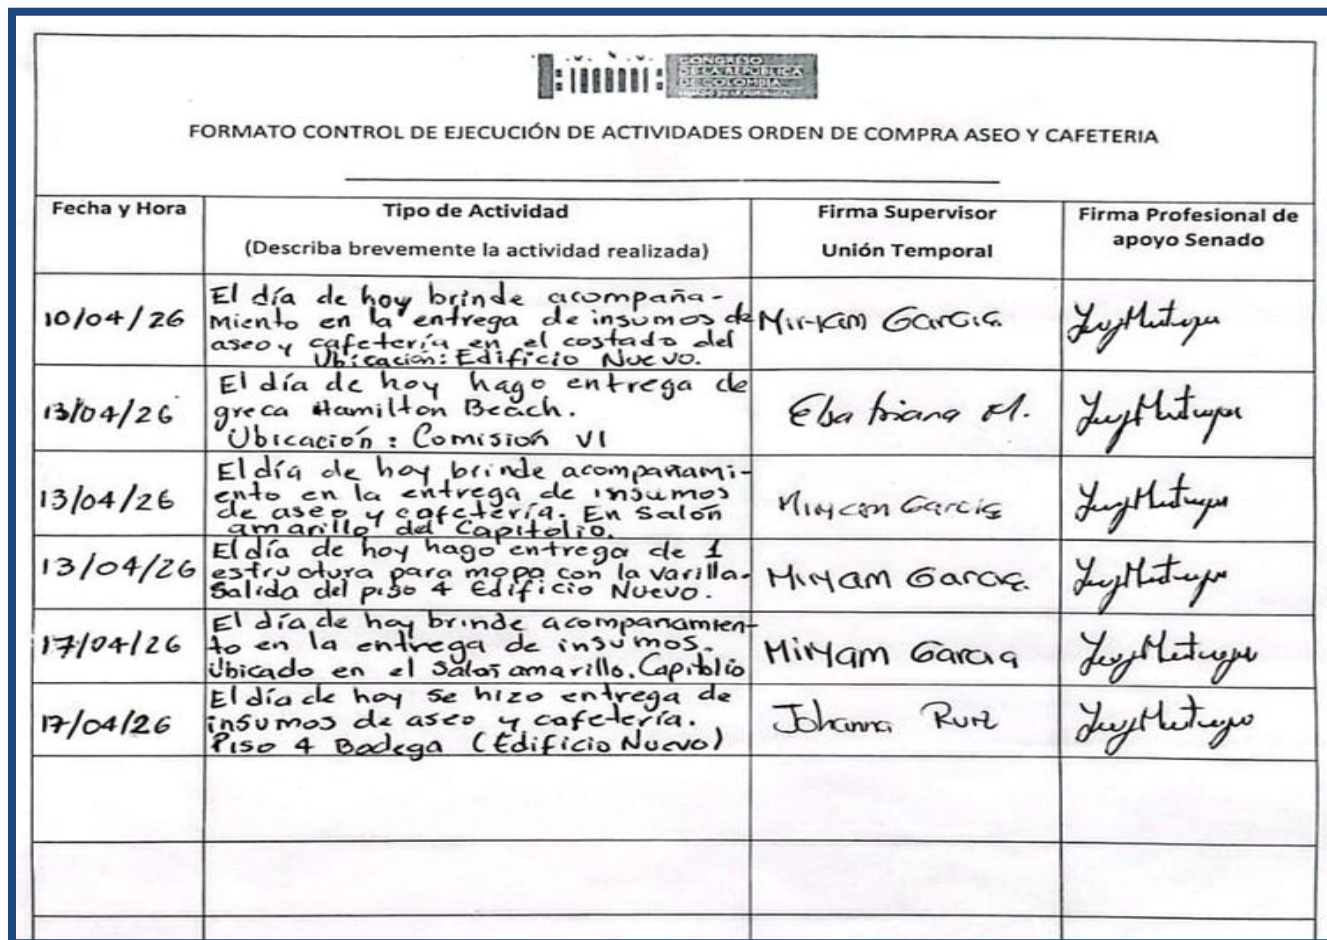 CONGRESO
DE LA REPÚBLICA
DE COLOMBIA
FORMATO CONTROL DE EJECUCIÓN DE ACTIVIDADES ORDEN DE COMPRA ASEO Y CAFETERIA
Fecha y Hora
Tipo de Actividad
(Describa brevemente la actividad realizada)
Firma Supervisor
Unión Temporal
Firma Profesional de
apoyo Senado
10/04/26
El día de hoy brinde acompaña-
miento en la entrega de insumos de
aseo y cafetería en el costado del
Ubicación: Edificio Nuevo.
Miriam Garcia
13/04/26
El día de hoy hago entrega de
greca Hamilton Beach.
Ubicación: Comisión VI
M.
13/04/26
El día de hoy brinde acompañami-
ento en la entrega de insumos
de aseo y cafetería. En Salón
amarillo del Capitolio.
Miryam Garcia
13/04/26
El día de hoy hago entrega de 1
estructura para mopa con la varilla.
Salida del piso 4 Edificio Nuevo.
Miryam Garcia
17/04/26
El día de hoy brinde acompanamien-
to en la entrega de insumos.
Ubicado en el Salon amarillo. Capitolio
Miryam Garcia
17/04/26
El día de hoy se hizo entrega de
insumos de aseo y cafetería.
Piso 4 Bodega (Edificio Nuevo)
Johanna Ruiz